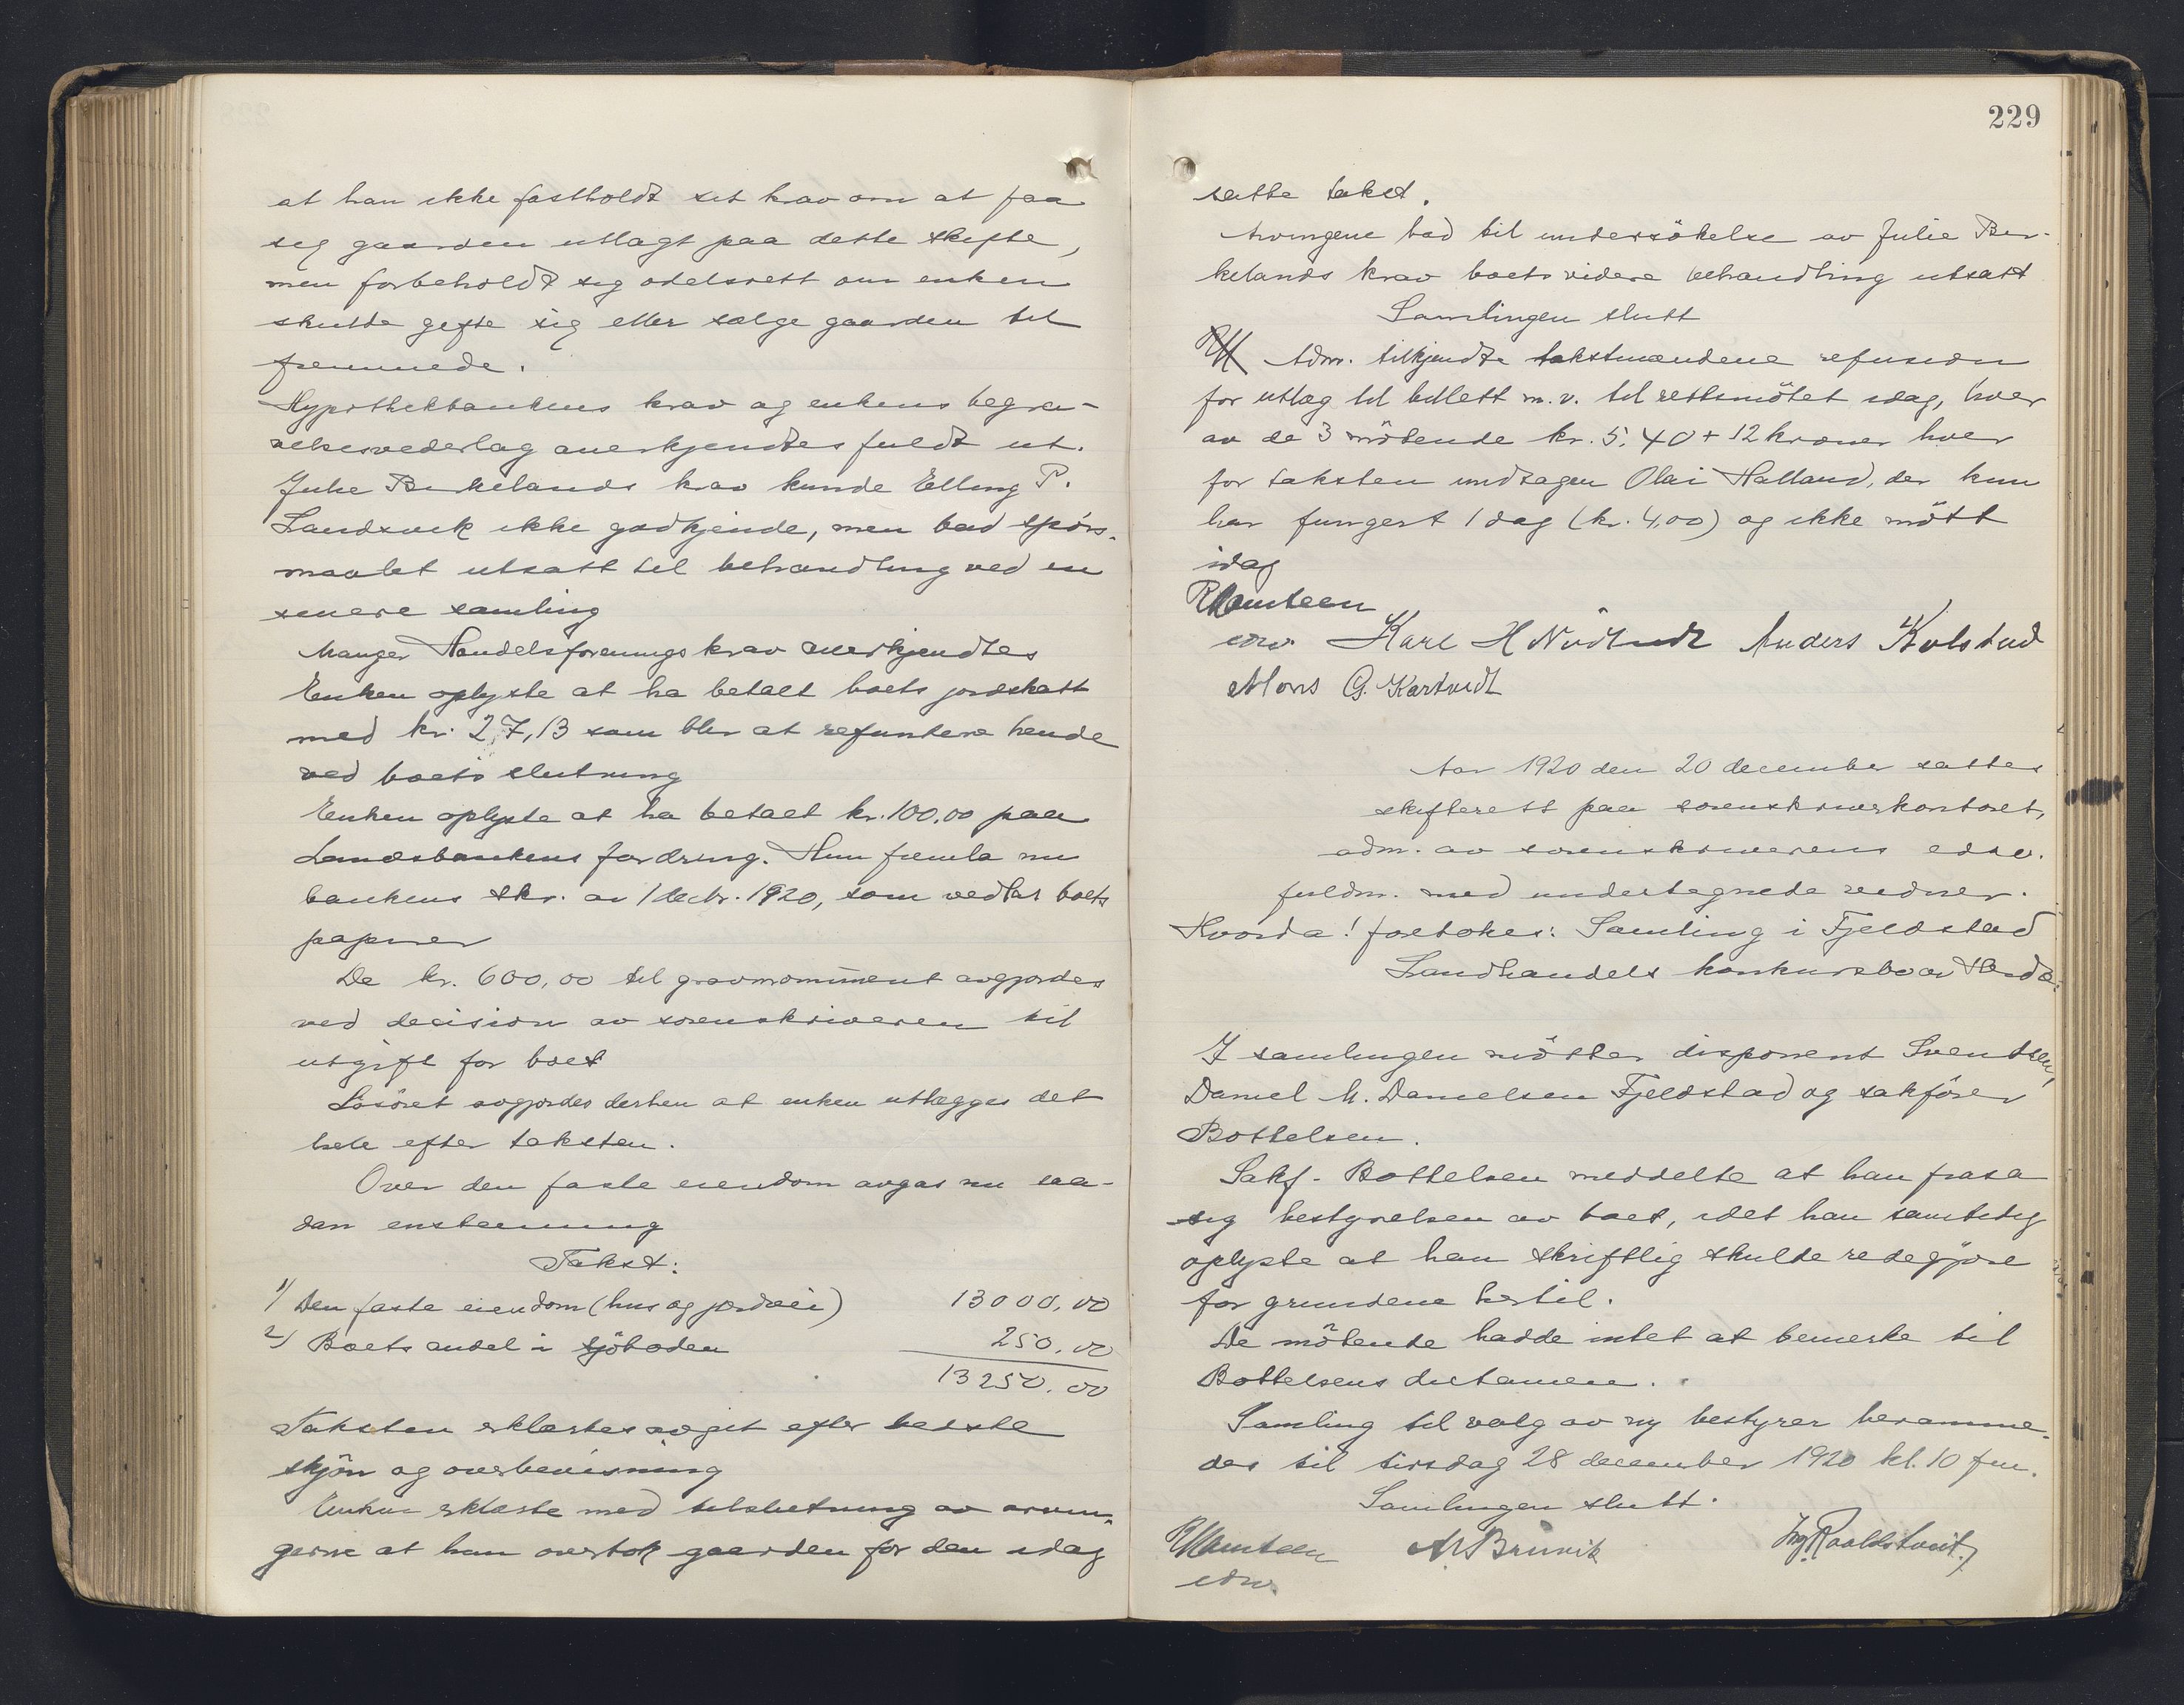 at han ikke fastholdt sit krav om at faa
sig gaarden utlagt paa dette skifte,
men forbeholdt sig odelsrett om enken
skulde gifte sig eller sælge gaarden til
fremmede.
Hypothekbankens krav og enkens begra-
velsesvederlag anerkjendtes fuldt ut.
Julie Birkelands krav kunde Elling P.
Landsvik ikke godkjende, men bad spörs-
maalet utsatt til behandling ved en
senere samling
Manger Handelsforenings krav anerkjendtes
Enken oplyste at ha betalt boets jordskatt
med kr. 27,13 som blir at refundere hende
ved boets slutning
Enken oplyste at ha betalt kr. 100,00 paa
Landsbankens fordring. Hun fremla nu
bankens skr. av 1 decbr. 1920, som vedtar boets
papirer
De kr. 600,00 til gravmonument avgjordes
ved decision av sorenskriveren til
utgift for boet
Lösöret avgjordes derhen at enken utlægges det
hele efter taksten.
Over den faste eiendom avgas nu saa-
dan enstemmig
Takst:
1) Den faste eiendom (hus og jordvei) 13000,00
2) Boets andel i sjöboden 250,00
13250,00
Taksten erklærtes avgit efter bedste
skjön og overbevisning
Enken erklærte med tilslutning av arvin-
gerne at hun overtok gaarden for den idag
229
satte takst.
Arvingene bad til undersökelse av Julie Bir-
kelands krav boets videre behandling utsatt
Samlingen slutt
RH Adm. tilkjendte takstmændene refusion
for utlæg til billett m.v. til rettsmötet idag, hver
av de 3 mötende kr. 5,40 + 12 kroner hver
for taksten undtagen Olai Halland, der kun
har fungert 1 dag (kr. 4,00) og ikke mött
idag
RHamteen
edsv. Karl H Nødtvedt Anders Kolstad
Mons G. Kartvedt
Aar 1920 den 20 december sattes
skifterett paa sorenskriverkontoret,
adm. av sorenskriverens edsv.
fuldm. med undertegnede vidner.
Hvorda! foretokes: Samling i Fjeldstad
Landhandels konkursbo av Herdla.
I samlingen mötter disponent Svendsen,
Daniel M. Danielsen Fjeldstad og sakförer
Bottelsen.
Sakf. Bottelsen meddelte at han frasa
sig bestyrelsen av boet, idet han samtidig
oplyste at han skriftlig skulde redegjöre
for grundene hertil.
De mötende hadde intet at bemerke til
Bottelsens dictamen.
Samling til valg av ny bestyrer beramme-
des til tirsdag 28 december 1920 kl. 10 fm.
Samlingen slutt.
RHamteen AB Brunvik Ing. Raaldstveit
edsv.